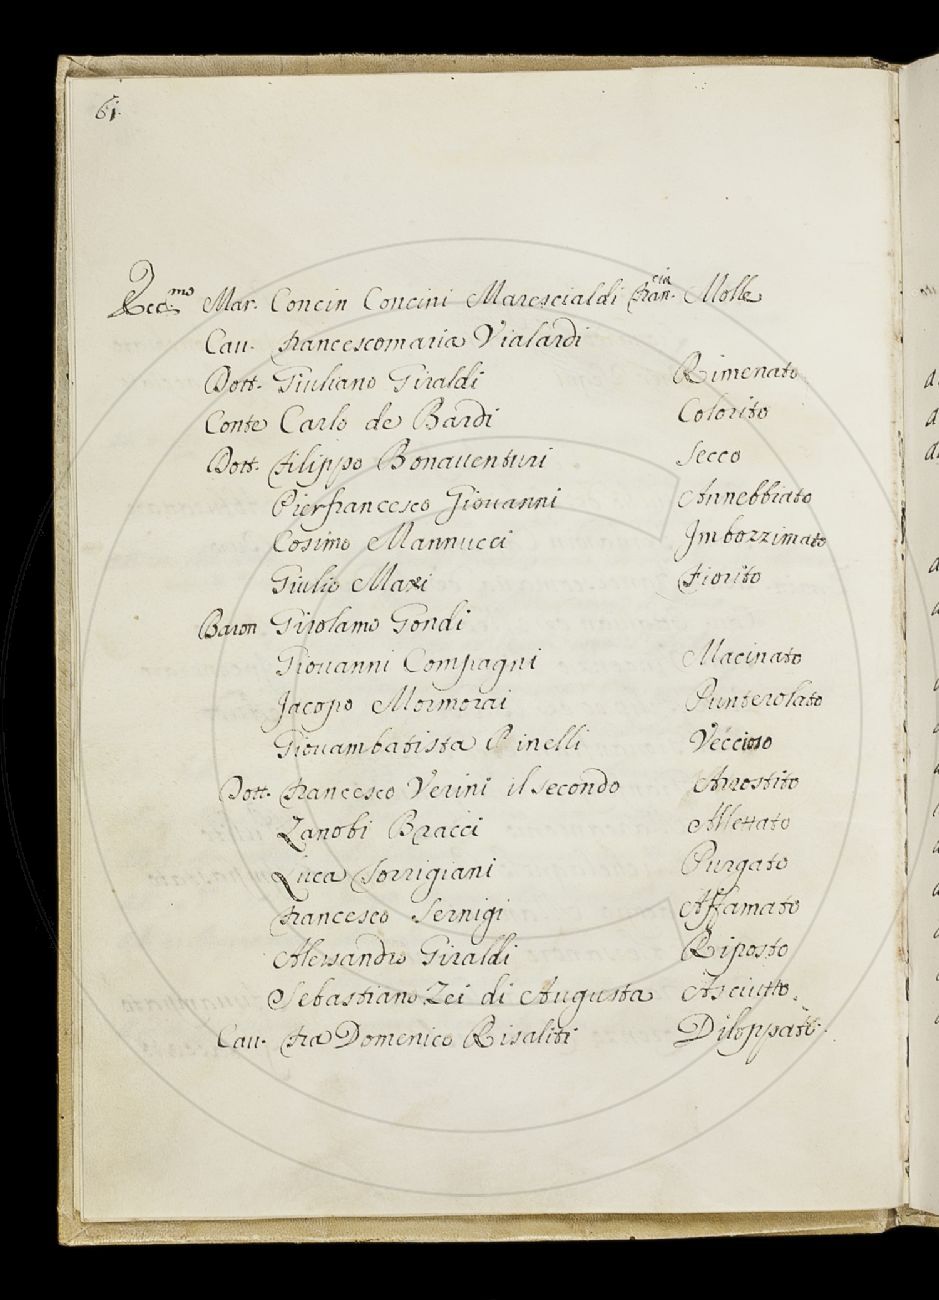 61.
Ecc.mo Mar. Concin Concini Marescialdi Fran.cia Molle
Cau. Francescomaria Vialardi
Dott. Giuliano Giraldi Rimenato
Conte Carlo de Bardi Colorito
Dott. Filippo Bonauenturi Secco
Pierfrancesco Giouanni Annebbiato
Cosimo Mannucci Imbozzimato
Giulio Maxi Fiorito
Baron Girolamo Gondi
Giouanni Compagni Macinato
Jacopo Mormorai Punterolato
Giouambatista Pinelli Veccioso
Dott. Francesco Verini il secondo Arrostito
Zanobi Bracci Allettato
Luca Torrigiani Purgato
Francesco Sernigi Affamato
Alessandro Giraldi Riposto
Sebastiano Zei di Augusta Asciutto.
Cau. Fra Domenico Risaliti Diloppato.